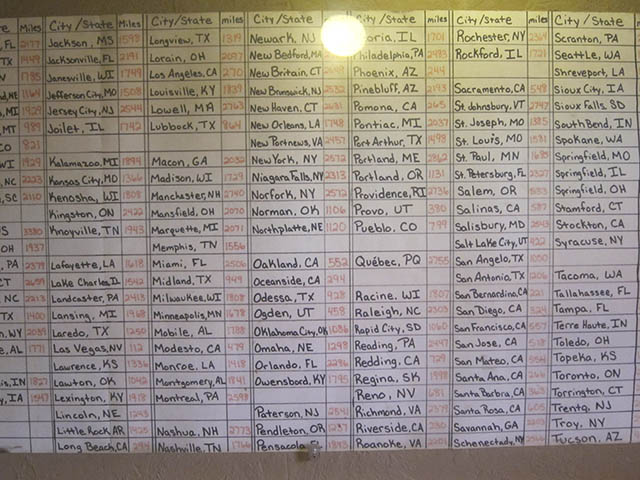 re MILES City/State Miles City/State miles City/State miles City/State miles City/State
, FL 2177 Jackson, MS 1598 Longview, TX 1319 Newark, NJ oria, IL 1701 Rochester, NY 2369 Scranton, PA
, TX 1449 Jacksonville, FL 2191 Lorain, OH 2097 New Bedford, MA Philadelphia, PA 2493 Rockford, IL 1721 Seattle, WA
N 1785 Janesville, WI 1749 Los Angeles, CA 270 New Britain, CT Phoenix, AZ 244 Shreveport, LA
1164 Jefferson City, MO 1508 Louisville, KY 1839 New Brunswick, NJ 2532 Pinebluff, AZ Sacramento, CA 548 Sioux City, IA
MI 1929 Jersey City, NJ 2544 Lowell, MA 2763 New Haven, CT 2631 Pomona, CA 265 St. Johnsbury, VT 2747 Sioux Falls, SD
MT 989 Joilet, IL 1742 Lubbock, TX 864 New Orleans, LA 1748 Pontiac, MI 2037 St. Joseph, MO 1385 South Bend, IN
CO 821 New Port news, VA 2457 Port Arthur, TX 1498 St. Louis, MO 1581 Spokane, WA
WI 1929 Kalamazoo, MI 1894 Macon, GA 2032 New York, NY 2572 Portland, ME 2862 St. Paul, MN 1685 Springfield, MO
NC 2223 Kansas City, MO 1366 Madison, WI 1729 Niagara Falls, NY 2313 Portland, OR 1131 St. Petersburg, FL 2327 Springfield, IL
SC 2110 Kenosha, WI 1808 Manchester, NH 2740 Norfork, NY 2572 Providence, RI 2736 Salem, OR Springfield, OH
Kingston, ON 2422 Mansfield, OH 2070 Norman, OK 1106 Provo, UT 380 Salinas, CA 587 Stamford, CT
US 3380 Knoyville, TN 1943 Marquette, MI 2071 Northplatte, NE 1120 Pueblo, CO 799 Salisbury, MD 2543 Stockton, CA
OH 1937 Memphis, TN 1556 Salt Lake City, UT 422 Syracuse, NY
, PA 2379 Lafayette, LA 1618 Miami, FL 2506 Oakland, CA 552 Québec, PQ 2755 San Angelo, TX 1050
CT 2659 Lake Charles, LA 1542 Midland, TX 949 Oceanside, CA 294 San Antonio, TX 1206 Tacoma, WA
NC 2213 Landcaster, PA 2413 Milwaukee, WI 1808 Odessa, TX 928 Racine, WI 1807 San Bernardina, CA 221 Tallahassee, FL
TX 1400 Lansing, MI 1968 Minneapolis, MN 1678 Ogden, UT 458 Raleigh, NC 2303 San Diego, CA 324 Tampa, FL
NY 2089 Laredo, TX 1250 Mobile, AL 1788 Oklahoma City, OK 1086 Rapid City, SD 1060 San Francisco, CA 557 Terre Haute, IN
e, AL 1771 Las Vegas, NV 112 Modesto, CA 479 Omaha, NE 1298 Reading, PA 2447 San Jose, CA 518 Toledo, OH
Lawrence, KS 1336 Monroe, LA 1418 Orlando, FL 2296 Redding, CA 729 San Mateo, CA 554 Topeka, KS
is, IN 1827 Lawton, OK 1042 Montgomery, AL 1841 Owensbord, KY 1795 Regina, SK 1398 Santa Ana, CA 266 Toronto, ON
y, IA 1547 Lexington, KY 1918 Montreal, PA 2598 Reno, NV 681 Santa Barbra, CA 363 Torrington, CT
Lincoln, NE 1243 Paterson, NJ 2541 Richmond, VA 2379 Santa Rosa, CA 605 Trentq, NJ
Little Rock AR 1425 Nashua, NH 2773 Pendleton, OR 1237 Riverside, CA 230 Savannah, GA Troy, NY
Long Beach, CA 294 Nashville, TN 1766 Pensacola FL 1843 Roanoke, VA 2201 Schenectady, NY Tucson, AZ